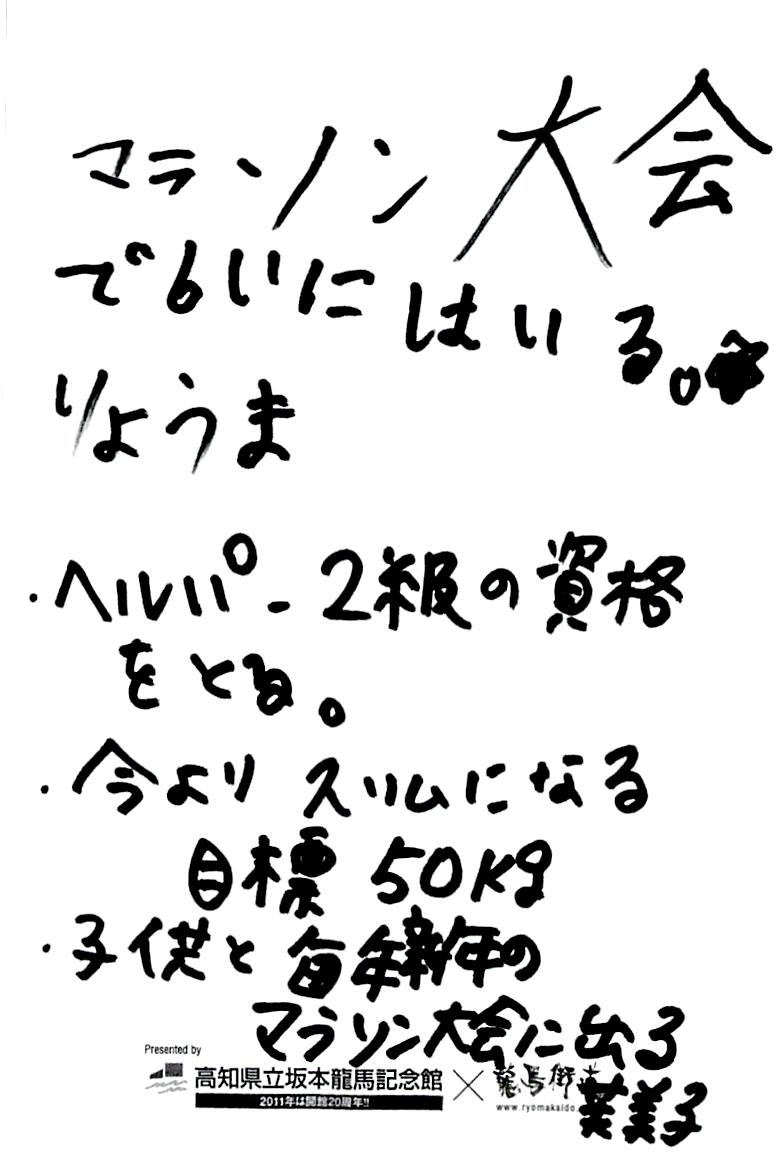 マラソン大会
で6いにはいる。
りょうま
・ヘルパー2級の資格
をとる。
・今よりスリムになる
目標 50kg
・子供と毎年新年の
マラソン大会に出る
英美子
Presented by
高知県立坂本龍馬記念館×龍馬街道
2011年は開館20周年!!
www.ryomakaido.